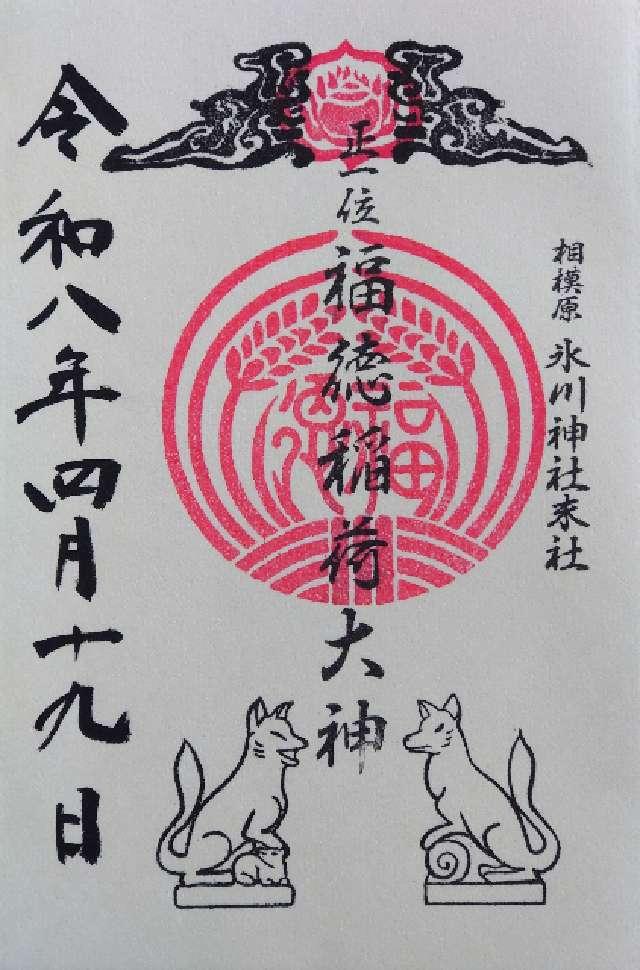 相模原 氷川神社末社
正一位 福徳稲荷大神
令和八年四月十九日
福徳